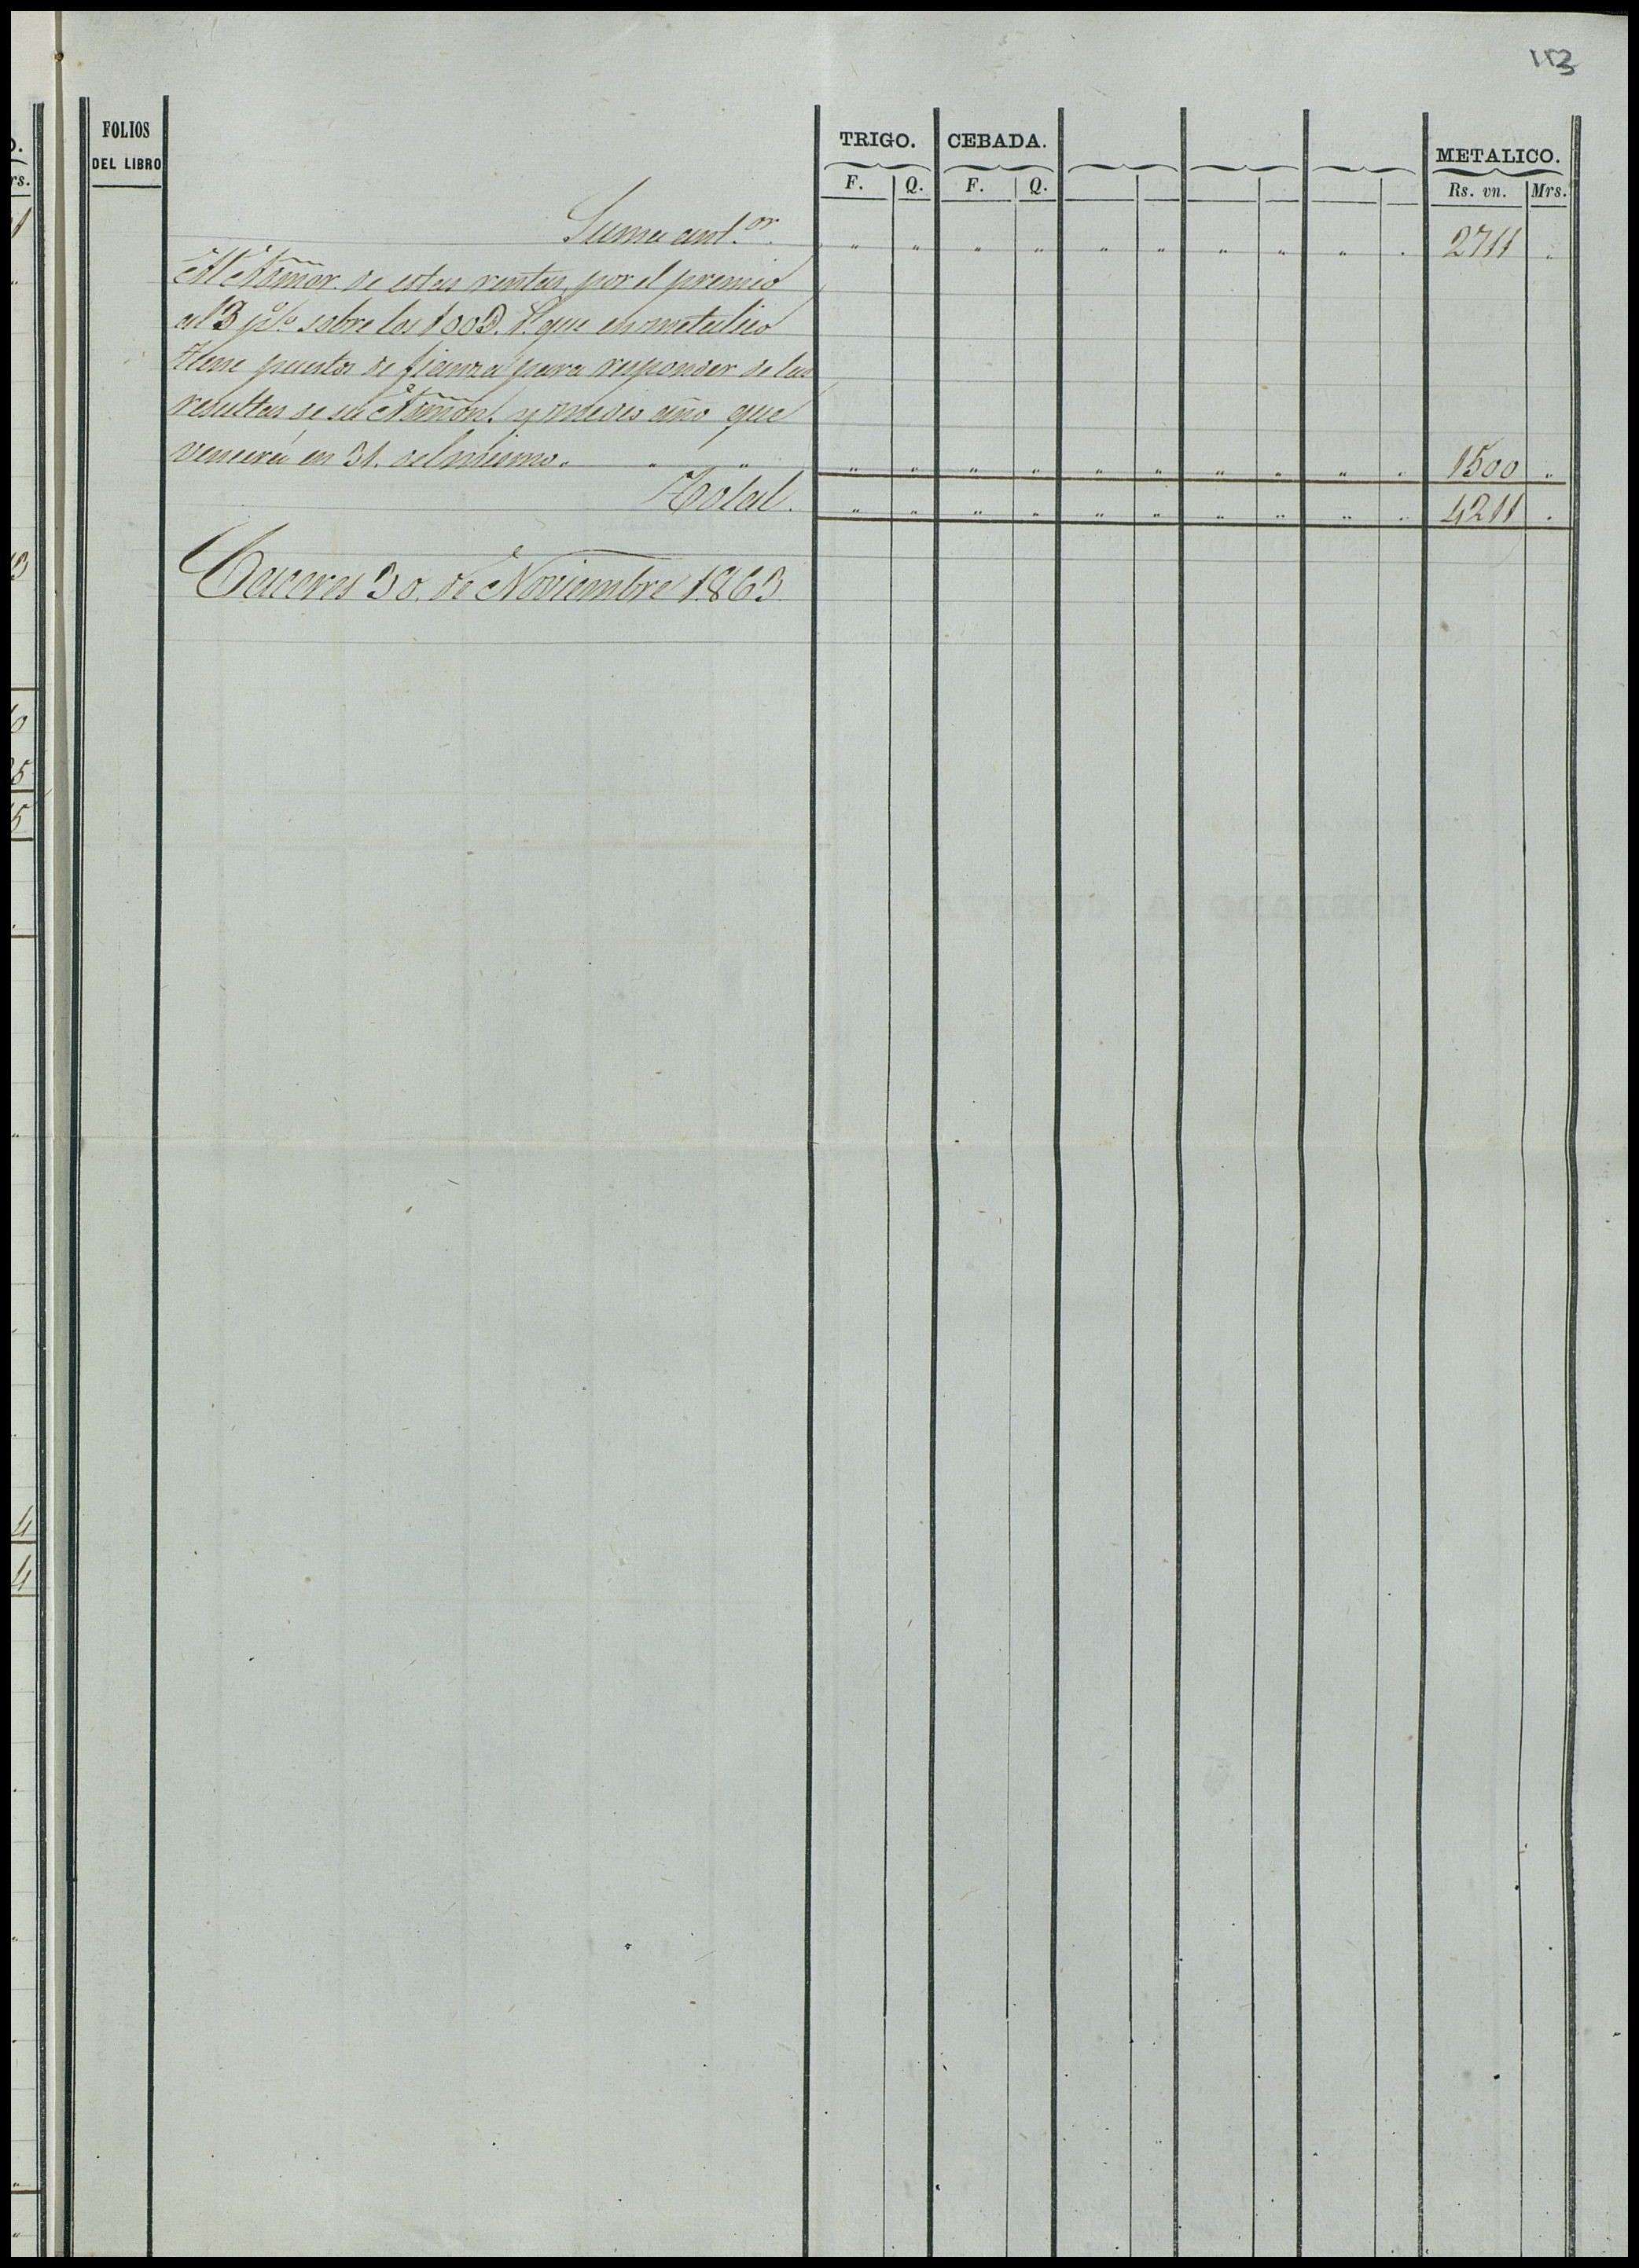 113
FOLIOS
DEL LIBRO
TRIGO. CEBADA. METALICO.
F. Q. F. Q. Rs. vn. Mrs.
Suma ant.or " " " " " " " " " " 2711 "
Al Admor. de estas rentas, por el premio
al 3 p% sobre los 100D. r. que en metalico
tiene puestos de fianza para responder de las
resultas de su Admon. y medio año que
vencerá en 31. del mismo. " " " " " " " " " " " " 1500 "
Total. " " " " " " " " " " 4211 .
Caceres 30. de Noviembre 1863.